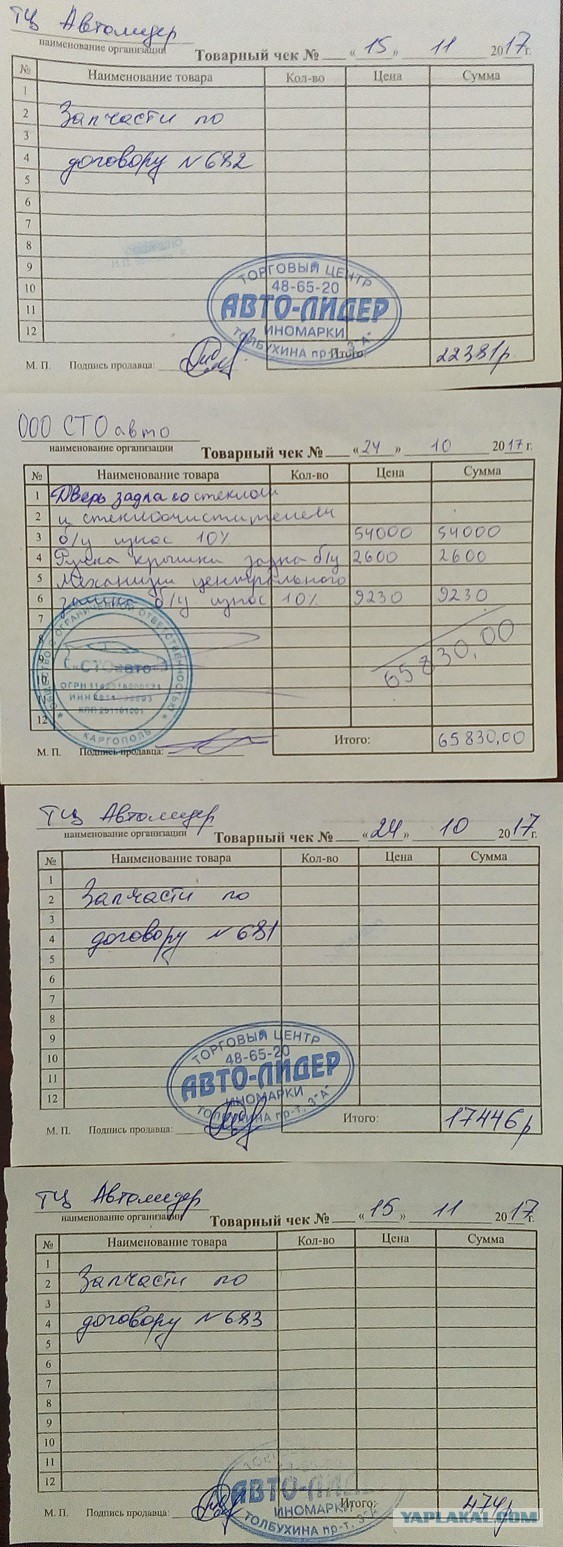 ТЦ Автолидер
наименование организации
Товарный чек № « 15 » 11 2017г.
№ Наименование товара Кол-во Цена Сумма
1
2 Запчасти по
3
4 договору №682
5
6
7
8
9
10
11
12
ТОРГОВЫЙ ЦЕНТР
48-65-20
АВТО-ЛИДЕР
ИНОМАРКИ
ТОЛБУХИНА пр-т, 3-"А"
Итого: 22381р
М. П. Подпись продавца:
ООО СТОавто
наименование организации
Товарный чек № « 24 » 10 2017г.
№ Наименование товара Кол-во Цена Сумма
1 Дверь задла со стеклом
2 и стеклоочистителем
3 б/у износ 10% 54000 54000
4 Ручка крышки задла б/у 2600 2600
5 Механизм центрального
6 замка б/у износ 10% 9230 9230
7
8
9
10
12
65830,00
«СТОавто»
КАРГОПОЛЬ
Итого: 65830,00
М. П. Подпись продавца:
ТЦ Автолидер
наименование организации
Товарный чек № « 24 » 10 2017г.
№ Наименование товара Кол-во Цена Сумма
1
2 Запчасти по
3
4 договору №681
5
6
7
8
9
10
11
12
ТОРГОВЫЙ ЦЕНТР
48-65-20
АВТО-ЛИДЕР
ИНОМАРКИ
ТОЛБУХИНА пр-т, 3-"А"
Итого: 17446р
М. П. Подпись продавца:
ТЦ Автолидер
наименование организации
Товарный чек № « 15 » 11 2017г.
№ Наименование товара Кол-во Цена Сумма
1
2 Запчасти по
3
4 договору №683
5
6
7
8
9
10
11
12
АВТО-ЛИДЕ
ИНОМАРКИ
ТОЛБУХИНА пр-т, 3-"А"
Итого: 474р
М. П. Подпись продавца:
YAPLAKAL.COM